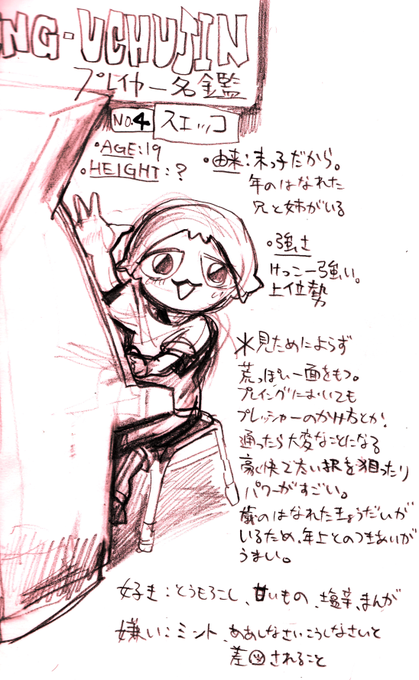 NG-UCHUJIN
プレイヤー名鑑
No.4 スエッコ
・AGE:19
・HEIGHT:?
・由来:末っ子だから。
年のはなれた
兄と姉がいる
・強さ
けっこー強い。
上位勢
*見ためによらず
荒っぽい一面をもつ。
プレイングにおいても
プレッシャーのかけ方とか、
通ったら大変なことになる
豪快で太い択を狙ったり
パワーがすごい。
歳のはなれたきょうだいが
いるため、年上とのつきあいが
うまい。
好き:とうもろこし、甘いもの、塩辛、まんが
嫌い:ミント、ああしなさいこうしなさいと
差されること